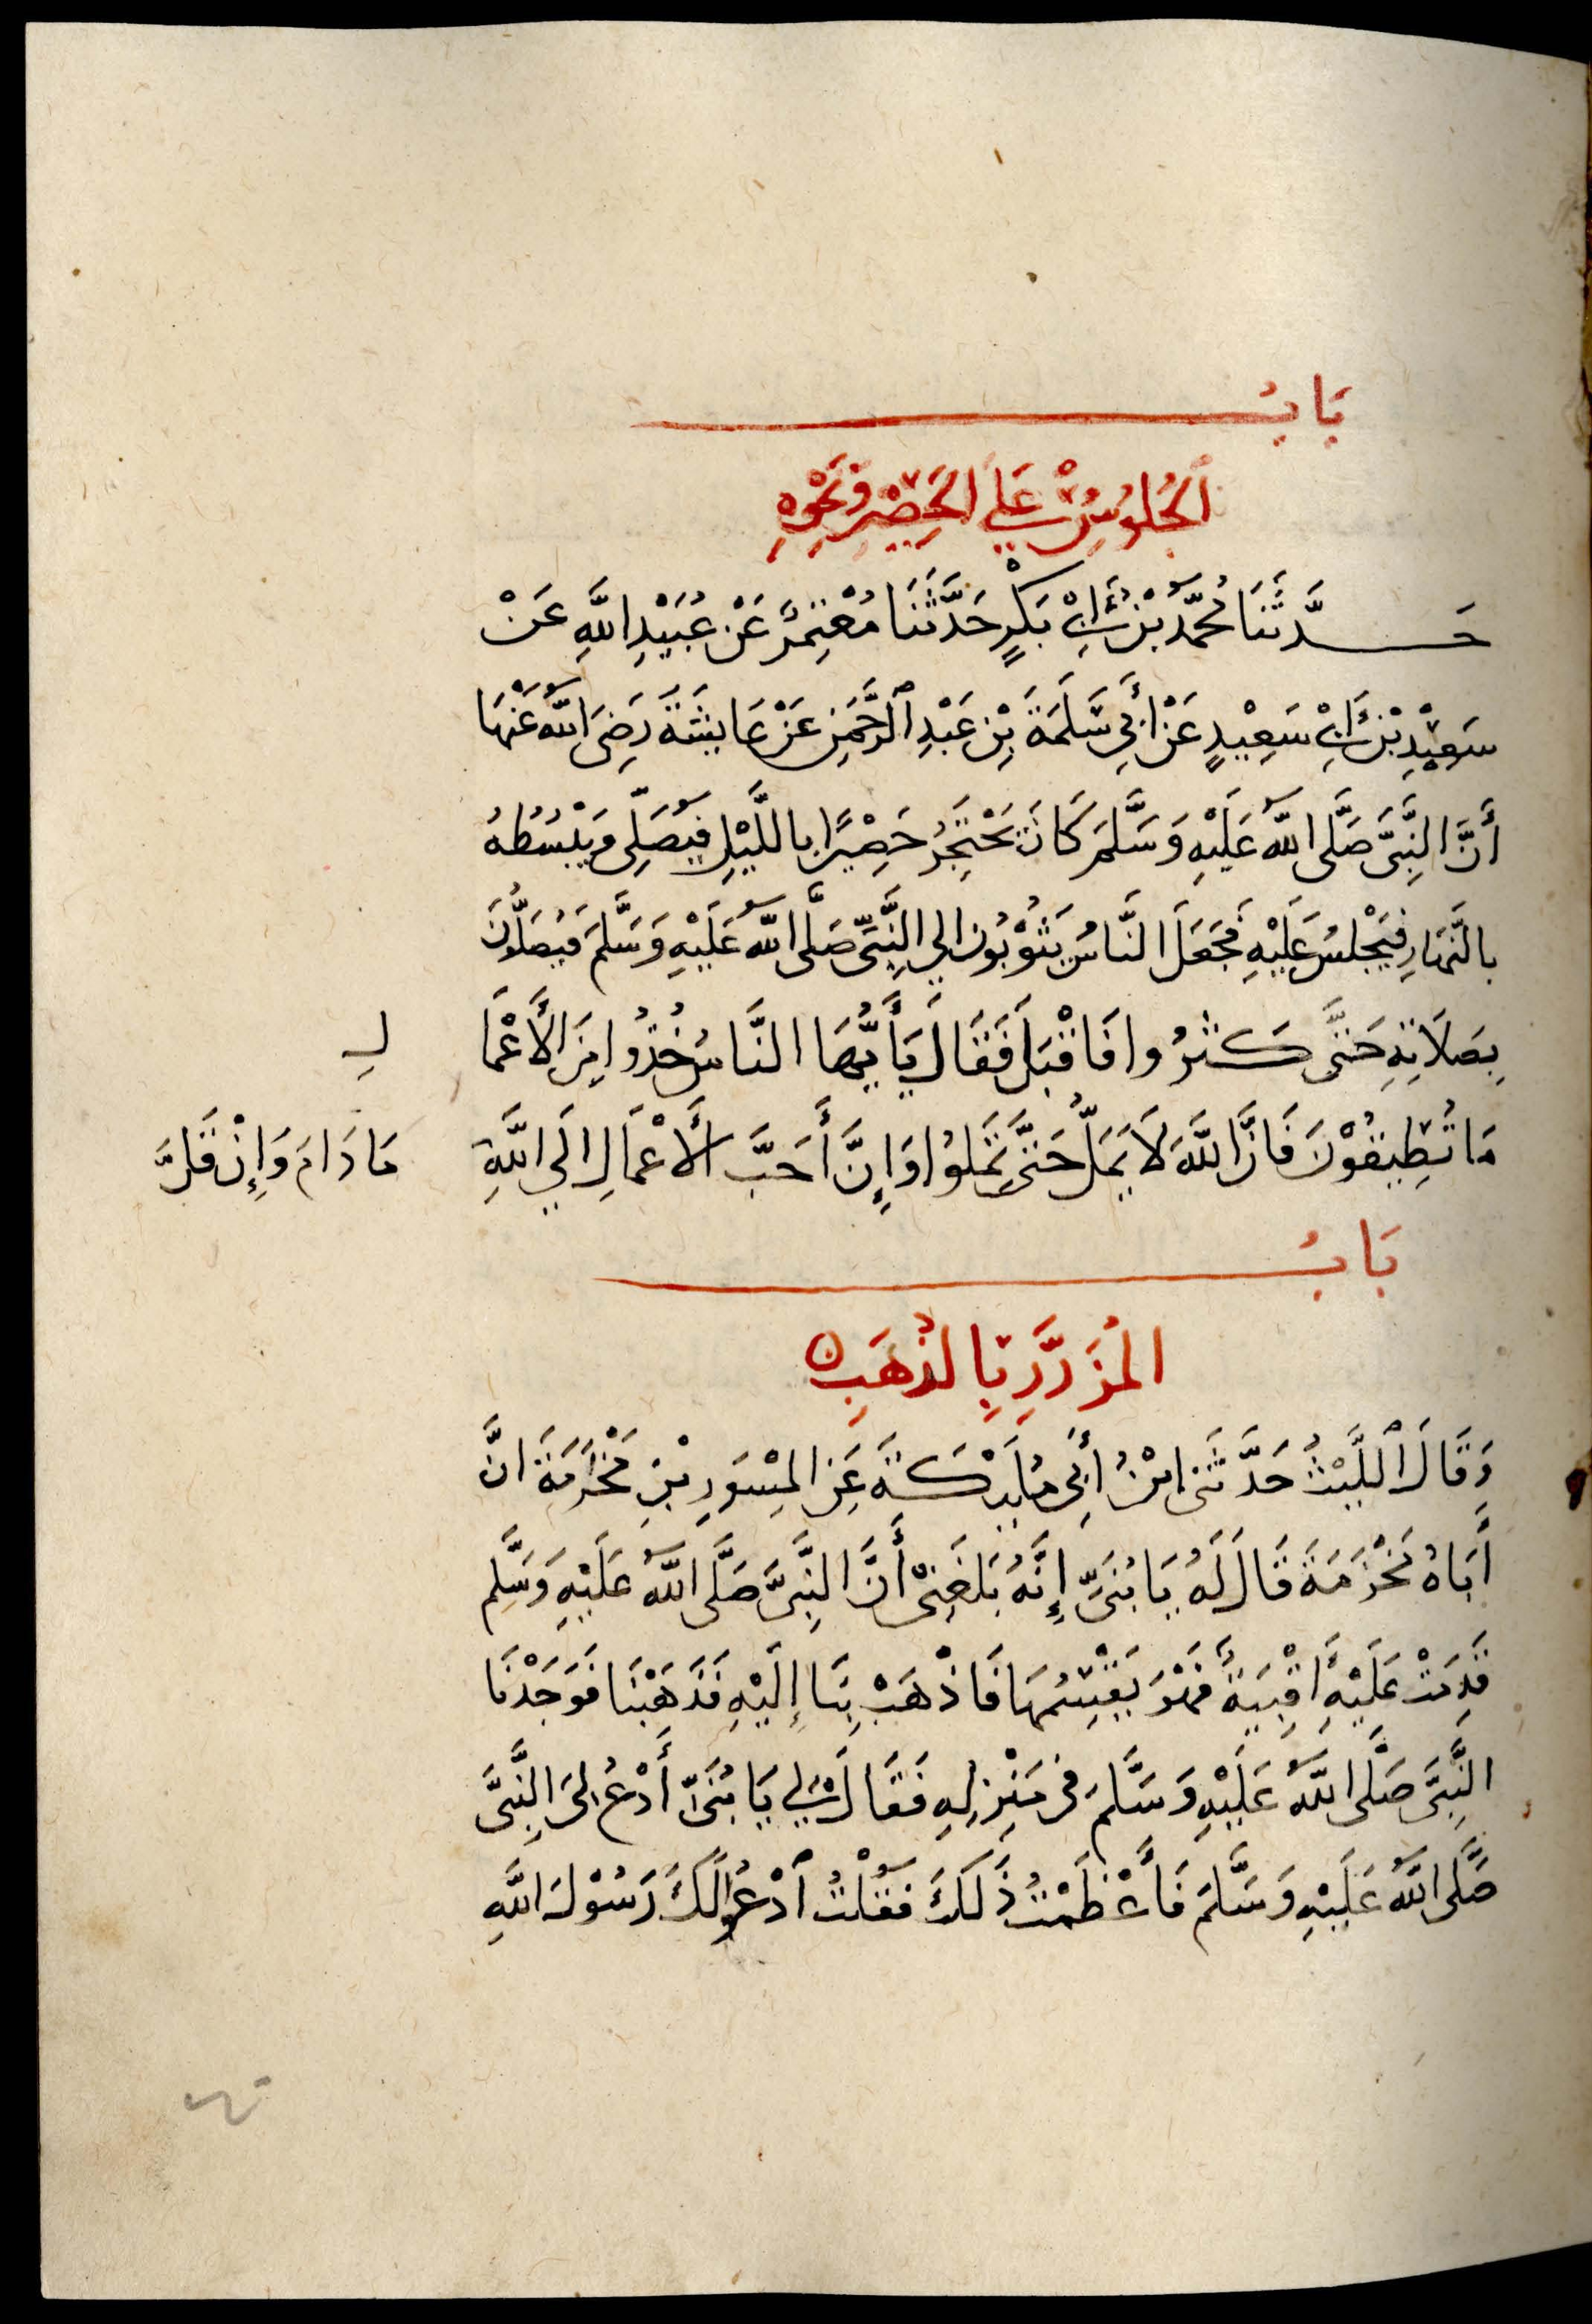 بَابُ
الجُلُوسِ عَلَى الحَصِيْرِ وَنَحْوِهِ
حَدَّثَنَا مُحَمَّدُ بْنُ أَبِيْ بَكْرٍ حَدَّثَنَا مُعْتَمِرٌ عَنْ عُبَيْدِ اللَّهِ عَنْ
سَعِيْدِ بْنِ أَبِيْ سَعِيْدٍ عَنْ أَبِي سَلَمَةَ بْنِ عَبْدِ الرَّحْمَنِ عَنْ عَايِشَةَ رَضِيَ اللَّهُ عَنْهَا
أَنَّ النَّبِيَّ صَلَّى اللَّهُ عَلَيْهِ وَسَلَّمَ كَانَ يَحْتَجِرُ حَصِيْرًا بِاللَّيْلِ فَيُصَلِّى وَيَبْسُطُهُ
بِالنَّهَارِ فَيَجْلِسُ عَلَيْهِ فَجَعَلَ النَّاسُ يَثُوْبُونَ إِلَى النَّبِيِّ صَلَّى اللَّهُ عَلَيْهِ وَسَلَّمَ فَيُصَلُّونَ
بِصَلَاتِهِ حَتَّى كَثُرُوا فَاَقْبَلَ فَقَالَ يَأَيُّهَا النَّاسُ خُذُوا مِنَ الأَعْمَالِ
مَا تُطِيقُوْنَ فَإِنَّ اللَّهَ لَا يَمَلُّ حَتَّى تَمَلُّوا وَإِنَّ أَحَبَّ الأَعْمَالِ إِلَى اللَّهِ مَا دَامَ وَإِنْ قَلَّ
بَابُ
المُزَرَّرِ بِالذَّهَبِ
وَقَالَ اللَّيْثُ حَدَّثَنِى ابْنُ أَبِى مُلَيْكَةَ عَنِ المِسْوَرِ بْنِ مَخْرَمَةَ اَنَّ
أَبَاهُ مَخْرَمَةَ قَالَ لَهُ يَا بُنَىِّ إِنَّهُ بَلَغَنِىْ أَنَّ النَّبِىَّ صَلَّى اللَّهُ عَلَيْهِ وَسَلَّم
قَدِمَتْ عَلَيْهِ اَقْبِيَةٌ فَهْوَ يَقْسِمُهَا فَاذْهَبْ بِنَا إِلَيْهِ فَذَهَبْنَا فَوَجَدْنَا
النَّبِىَّ صَلَّى اللَّهُ عَلَيْهِ وَسَلَّمَ فِى مَنْزِلِهِ فَقَالَ لِي يَا بُنَىِّ أُدْعُ لِىَ النَّبِىَّ
صَلَّى اللَّهُ عَلَيْهِ وَسَلَّمَ فَأَعْظَمْتُ ذَلَكَ فَقُلْتُ اَدْعُوا لَكَ رَسُوْلَ اللَّهِ